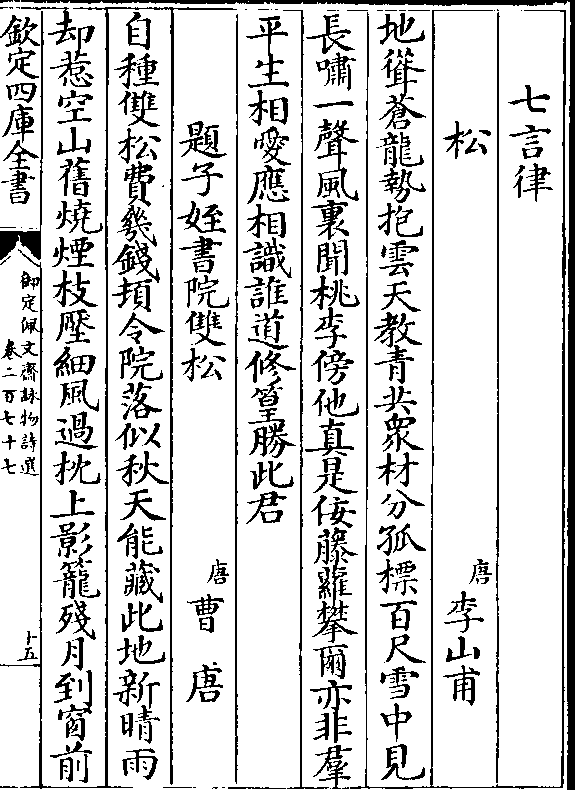 七言律
松　唐　李山甫
地聳蒼龍勢抱雲天教青共衆材分孤標百尺雪中見
長嘯一聲風裏聞桃李傍他真是佞藤蘿攀爾亦非羣
平生相愛應相識誰道修篁勝此君
題子姪書院雙松　唐　曹唐
自種雙松費幾錢頓令院落似秋天能藏此地新晴雨
却惹空山舊燒煙枝壓細風過枕上影籠殘月到窗前
欽定四庫全書
御定佩文齋詠物詩選
卷二百七十七
十五